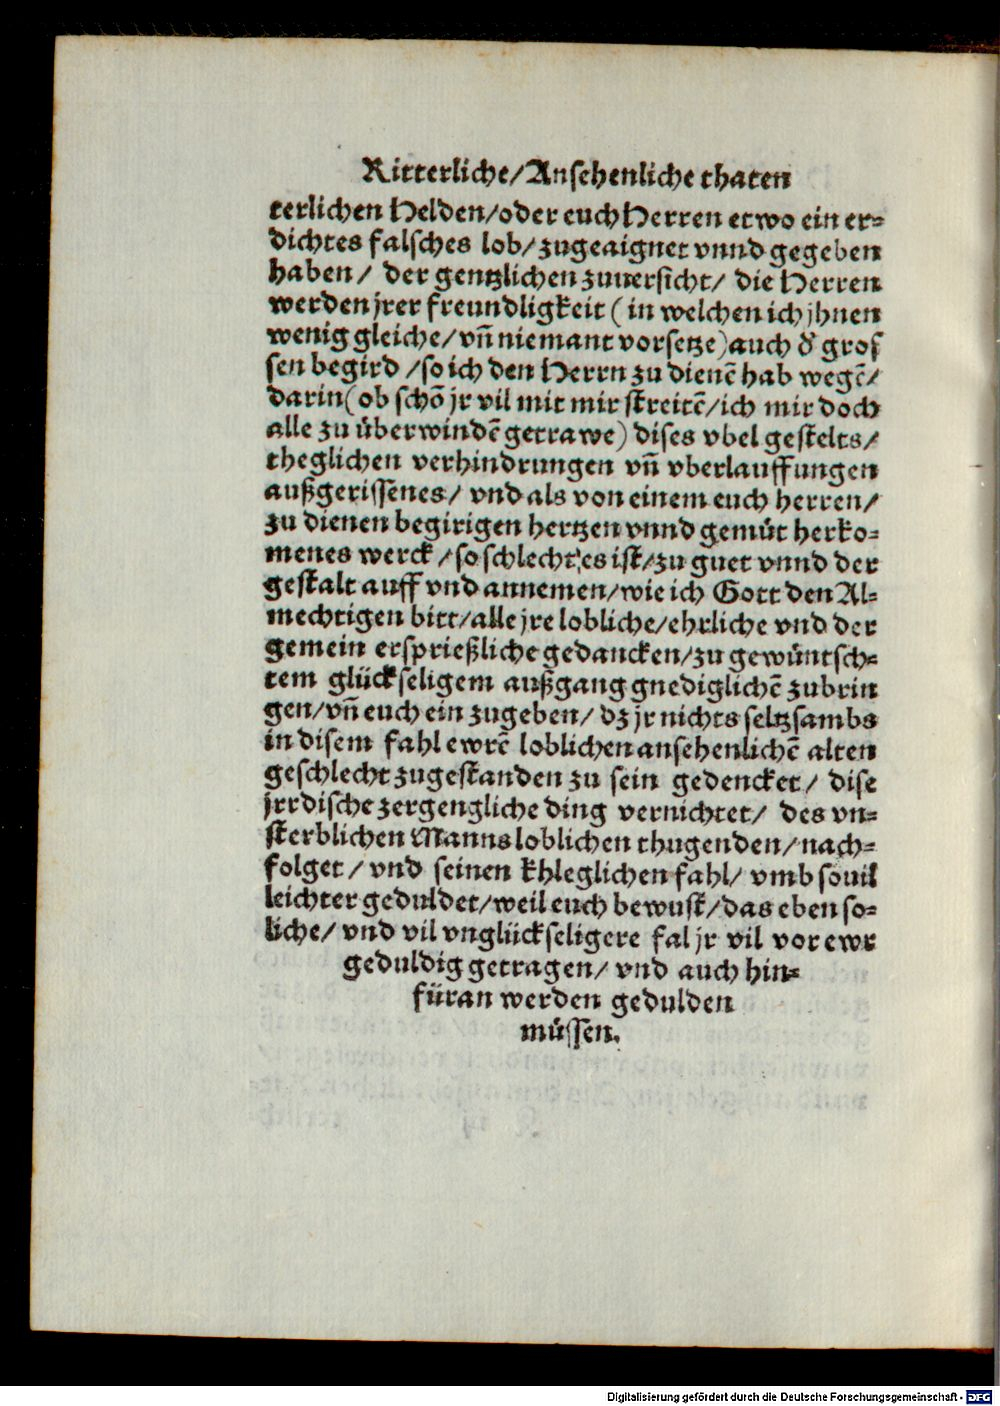 Ritterliche/Ansehenliche thaten
terlichen Helden/oder euch Herren etwo ein er=
dichtes falsches lob/zugeaignet vnnd gegeben
haben/ der gentzlichen zuuersicht/ die Herren
werden jrer freundligkeit (in welchen ich jhnen
wenig gleiche/vñ niemant vorsetze)auch ď gros
sen begird /so ich den Herrn zu dienẽ hab wegẽ/
darin(ob schõ jr vil mit mir streitẽ/ich mir doch
alle zu überwindẽ getrawe) dises vbel gestelts/
theglichen verhindrungen vñ vberlauffungen
außgerissenes/ vnd als von einem euch herren/
zu dienen begirigen hertzen vnnd gemüt herko=
menes werck/so schlecht es ist/zu guet vnnd der
gestalt auff vnd annemen/wie ich Gott den Al=
mechtigen bitt/alle jre lobliche/ehrliche vnd der
gemein ersprießliche gedancken/zu gewüntsch=
tem glückseligem außgang gnediglichẽ zubrin
gen/vñ euch ein zugeben/ dz jr nichts seltzsambs
in disem fahl ewrẽ loblichen ansehenlichẽ alten
geschlecht zugestanden zu sein gedencket/ dise
jrrdische zergengliche ding vernichtet/ des vn=
sterblichen Manns loblichen thugenden/nach=
folget/ vnd seinen khleglichen fahl/ vmb souil
leichter geduldet/weil euch bewust/das eben so=
liche/ vnd vil vnglückseligere fal jr vil vor ewr
geduldig getragen/ vnd auch hin=
füran werden gedulden
müssen.
Digitalisierung gefördert durch die Deutsche Forschungsgemeinschaft - DFG